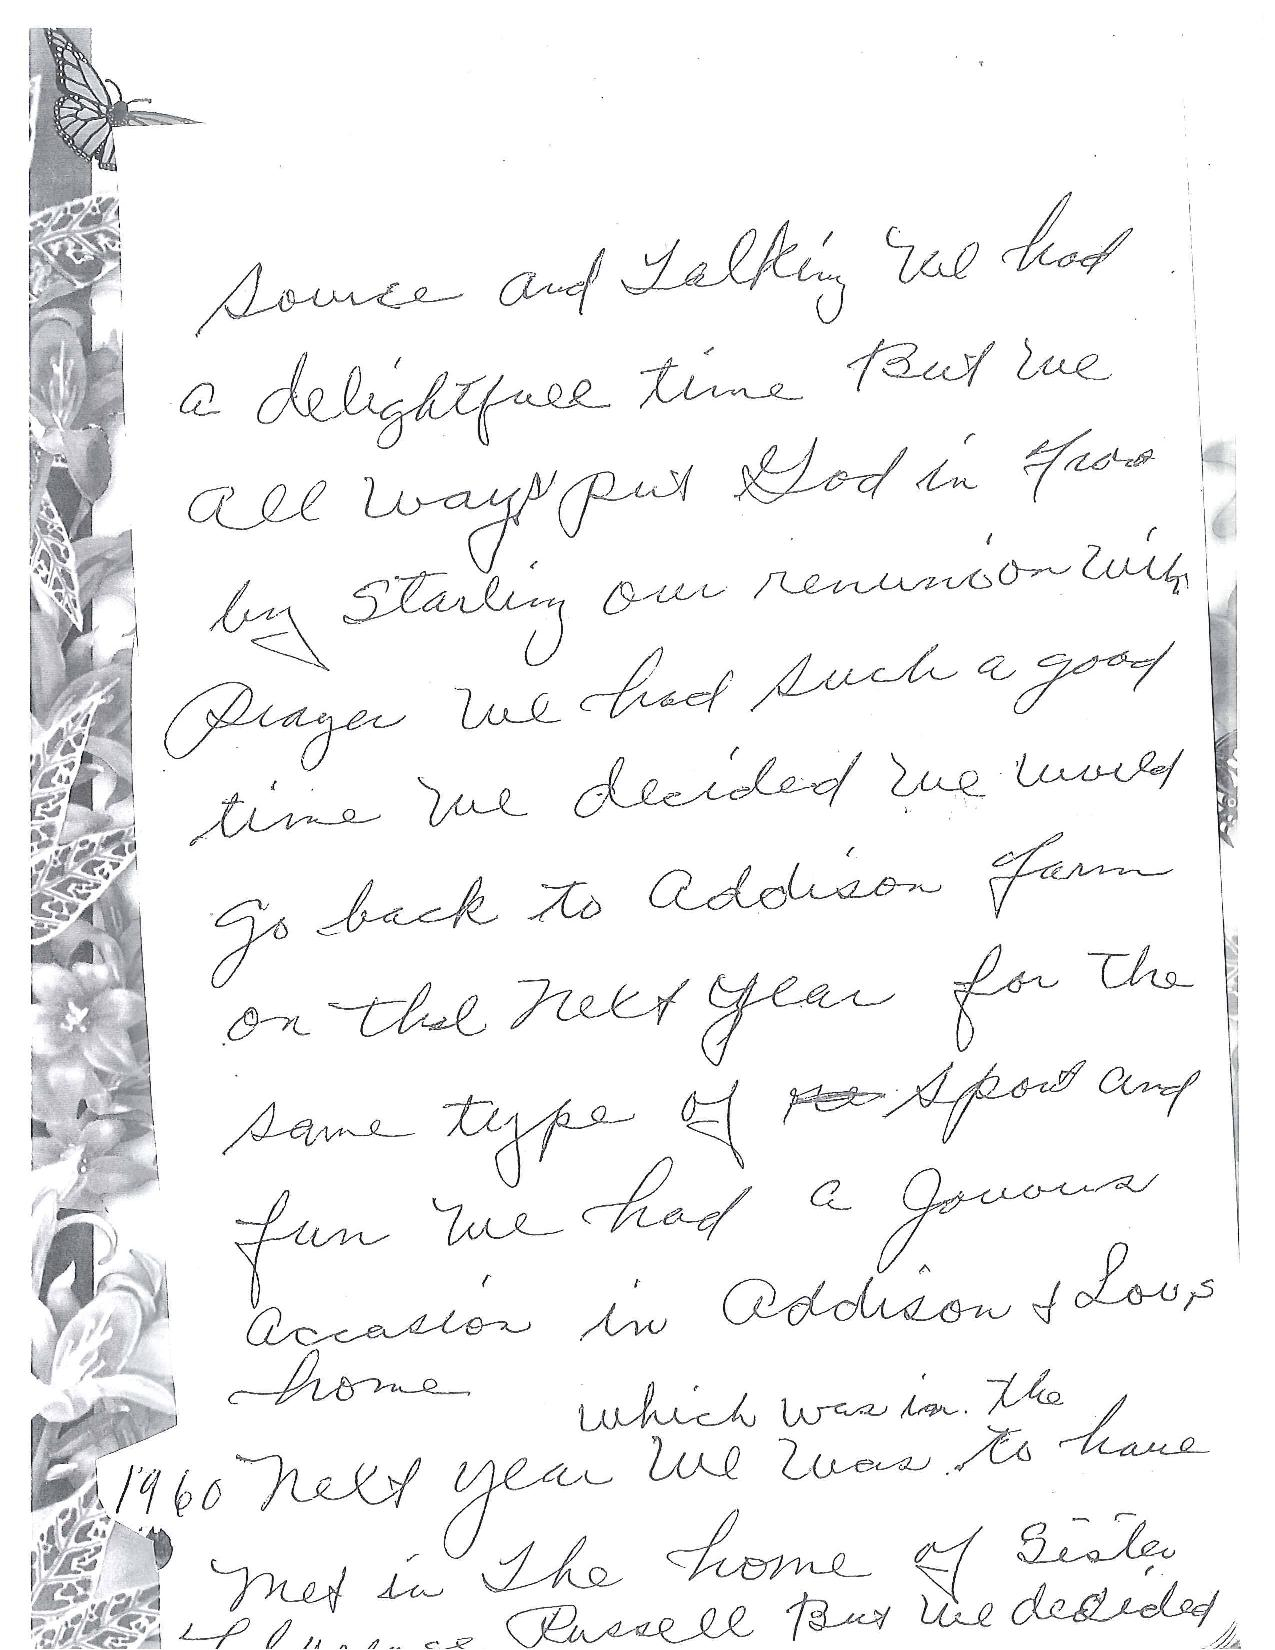 source and Talking We had
a delightfull time But we
all ways put God in
by Starting our renunion with
Prayer We had such a good
time We decided we would
go back to Addison farm
on the Next year for the
same type of sport and
fun We had a Jouous
accasion in Addison & Lou,s
home
which was in. the
1960 Next year We was to have
Met in The home of Sister
Russell But We decided